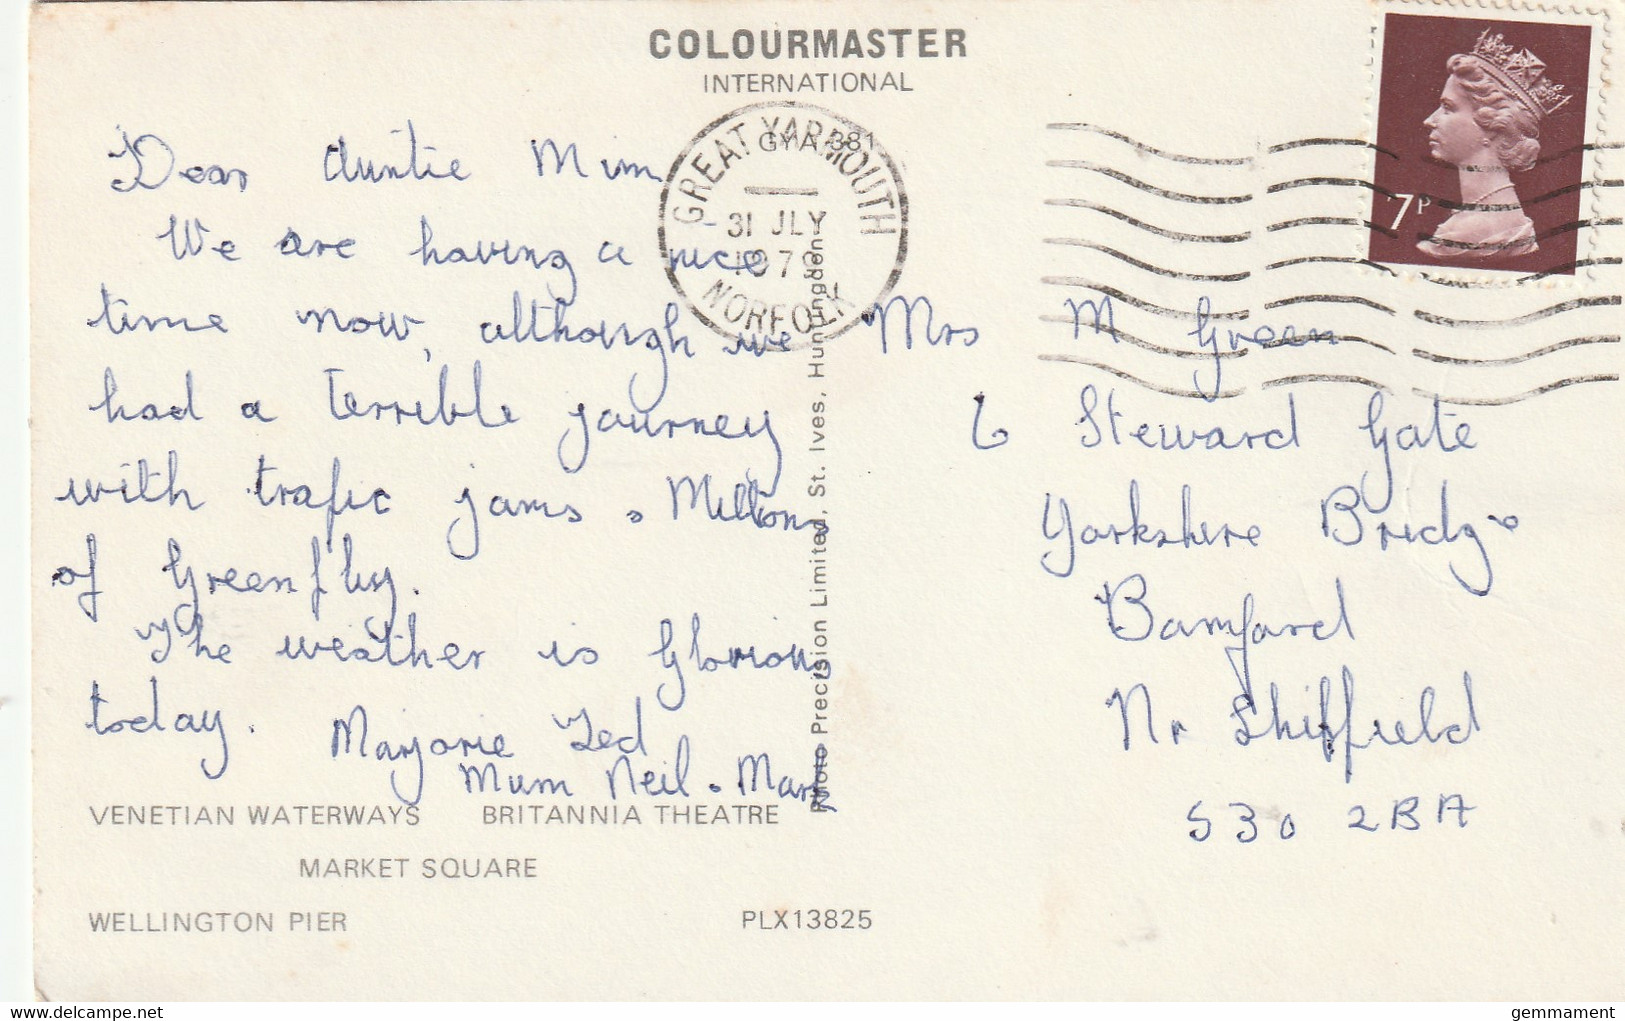 COLOURMASTER
INTERNATIONAL
GYA 381
GREAT YARMOUTH
31 JLY
NORFOLK
7P
Dear Auntie Mim
We are having a nice
time now, although we
had a terrible journey
with trafic jams. Millions
of Greenfly.
The weather is Glorious
today. Marjorie Ted
Mum Neil. Mark
Mrs M Green
6 Steward Gate
Yorkshire Bridge
Bamford
Nr Shiffield
S30 2BA
Photo Precision Limited, St. Ives, Huntingdon
VENETIAN WATERWAYS BRITANNIA THEATRE
MARKET SQUARE
WELLINGTON PIER PLX13825
delcampe.net
gemmament